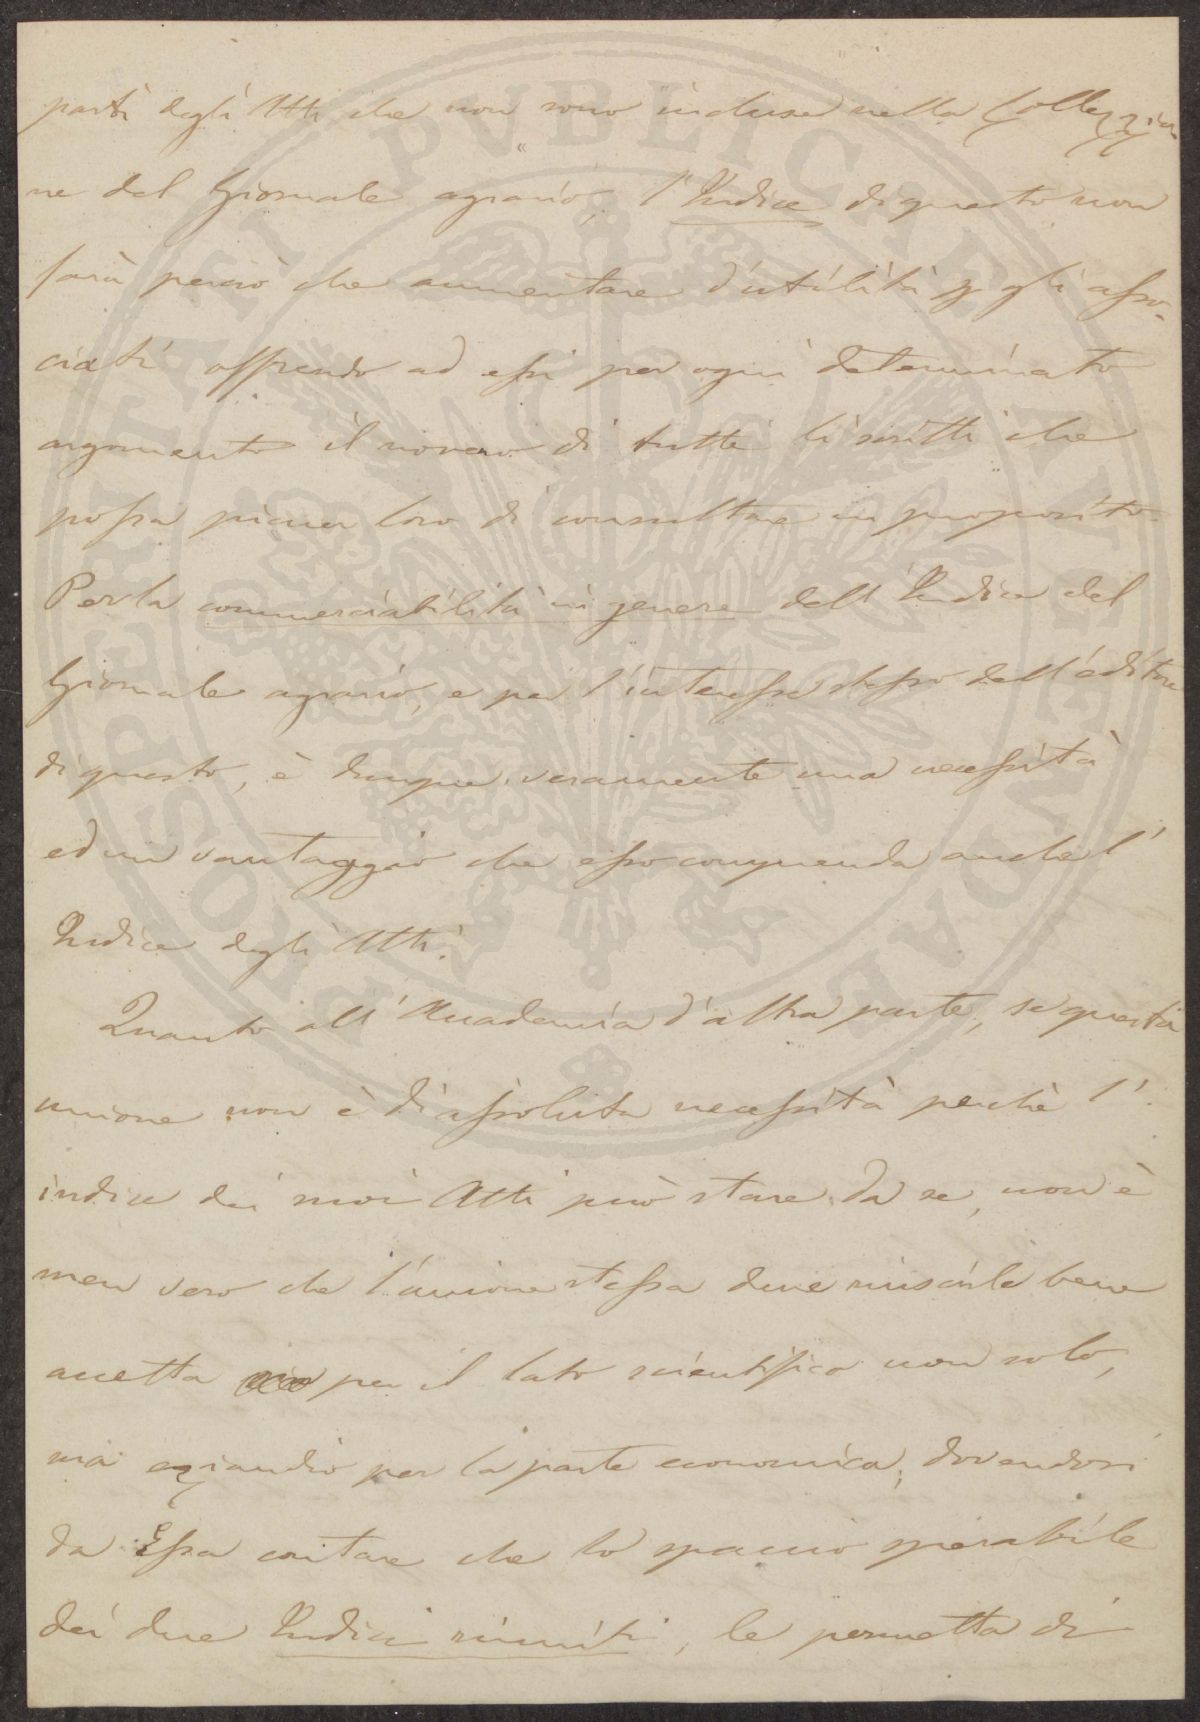 parti degli Atti che non sono incluse nella Collezzio
ne del Giornale agrario, l'Indice di questo non
farà perciò che aumentare d'utilità p gli asso-
ciati offrendo ad essi per ogni determinato
argomento il novero di tutti li scritti che
possa piacer loro di consultare in proposito.
Per la commerciabilità in genere dell'Indice del
Giornale agrario, e per l'interesse stesso dell'editore
di questo, è dunque veramente una necessità
ed un vantaggio che esso comprenda anche l'
Indice degli Atti.
Quanto all'Accademia d'altra parte, se questa
unione non è di assoluta necessità perchè l'
indice dei suoi Atti può stare da se, non è
men vero che l'unione stessa deve riuscirle bene
accetta per il lato scientifico non solo,
ma eziandio per la parte economica; dovendosi
da Essa contare che lo spaccio sperabile
dei due Indici riuniti, le permetta di
PROSPERITATI PVBLICAE AVGENDAE